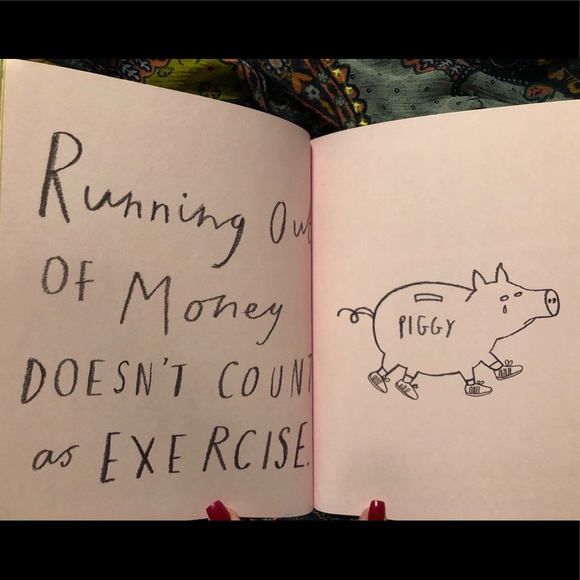 Running Out
OF Money
DOESN'T COUNT
as EXERCISE.
PIGGY